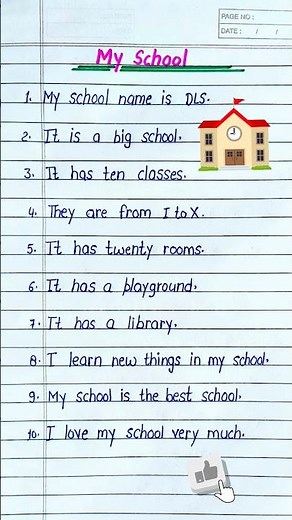 PAGE NO :
DATE : / /
My School
1. My school name is DLS.
2. It is a big school.
3. It has ten classes.
4. They are from I to X.
5. It has twenty rooms.
6. It has a playground.
7. It has a library.
8. I learn new things in my school.
9. My school is the best school.
10. I love my school very much.